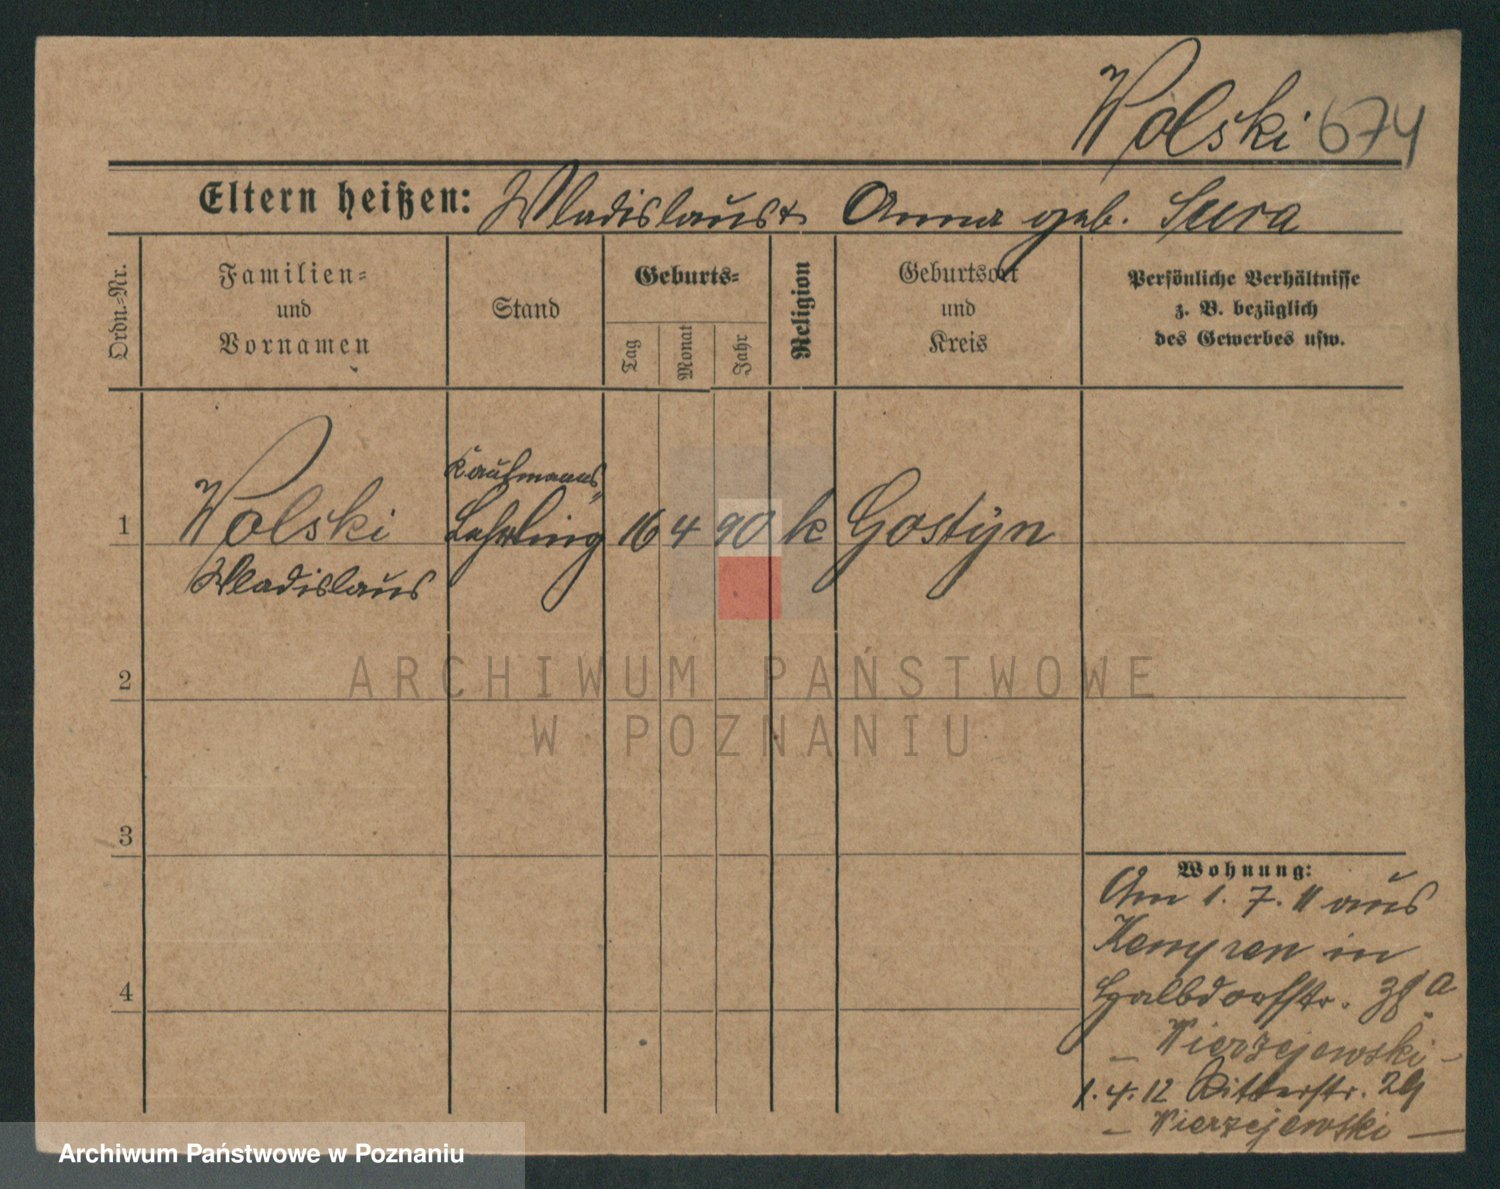 Wolski 674
Eltern heißen: Wladislaus & Anna geb. Sura
Ordn.=Nr.
Familien=
und
Vornamen
Stand
Geburts=
Tag
Monat
Jahr
Religion
Geburtsort
und
Kreis
Persönliche Verhältnisse
z. B. bezüglich
des Gewerbes usw.
Kaufmanns
1 Wolski Lehrling 16 4 90 k Gostyn
Wladislaus
2
3
4
Wohnung:
Am 1. 7. 11 aus
Kempen in
Halbdorfstr. a
- Wierzejewski -
1. 4. 12 Ritterstr. 29
- Wierzejewski -
ARCHIWUM PAŃSTWOWE
W POZNANIU
Archiwum Państwowe w Poznaniu